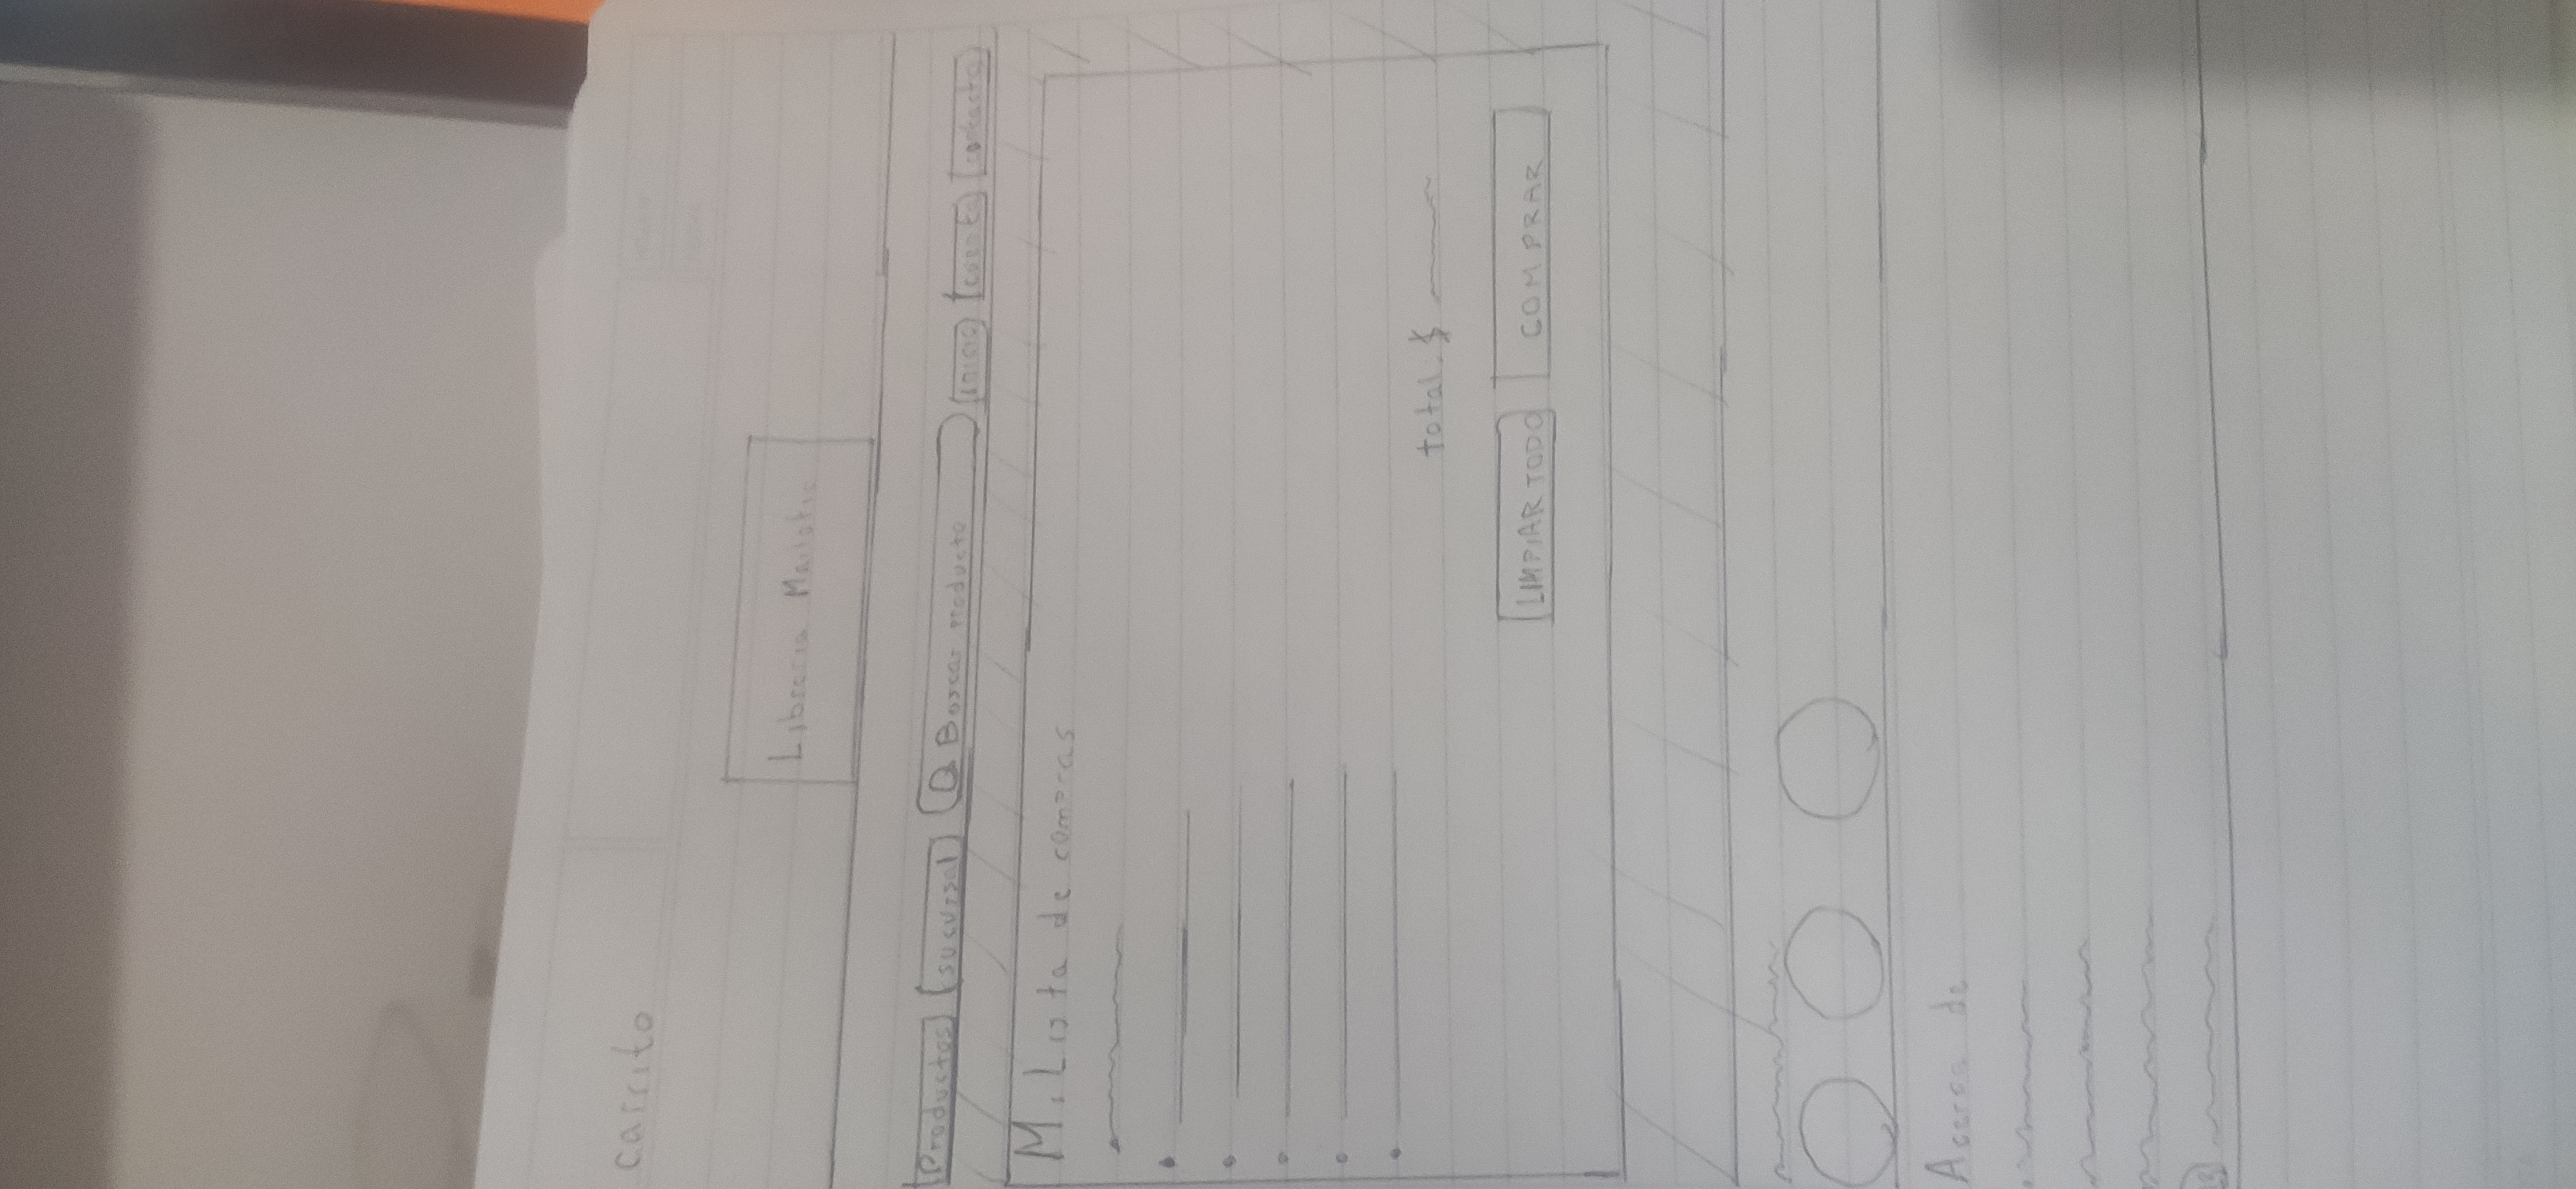 carrito
Libreria
Productos sucursal Buscar producto inicio cuenta contacto
Mi Lista de compras
total: $
LIMPIAR TODO COMPRAR
Acerca de